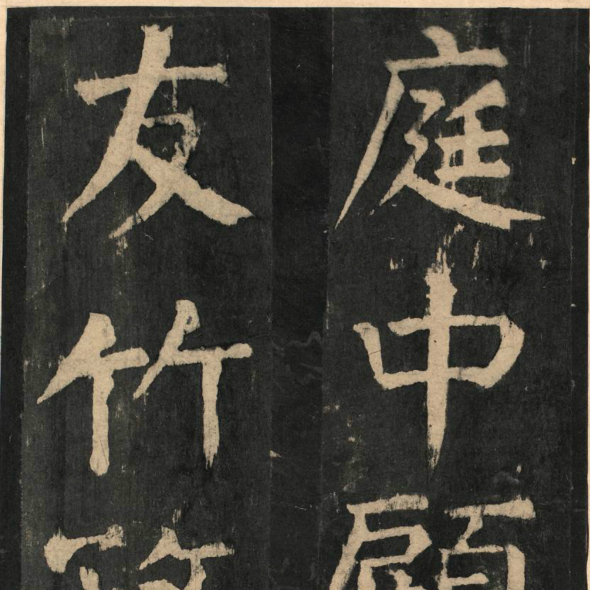 庭中
友竹